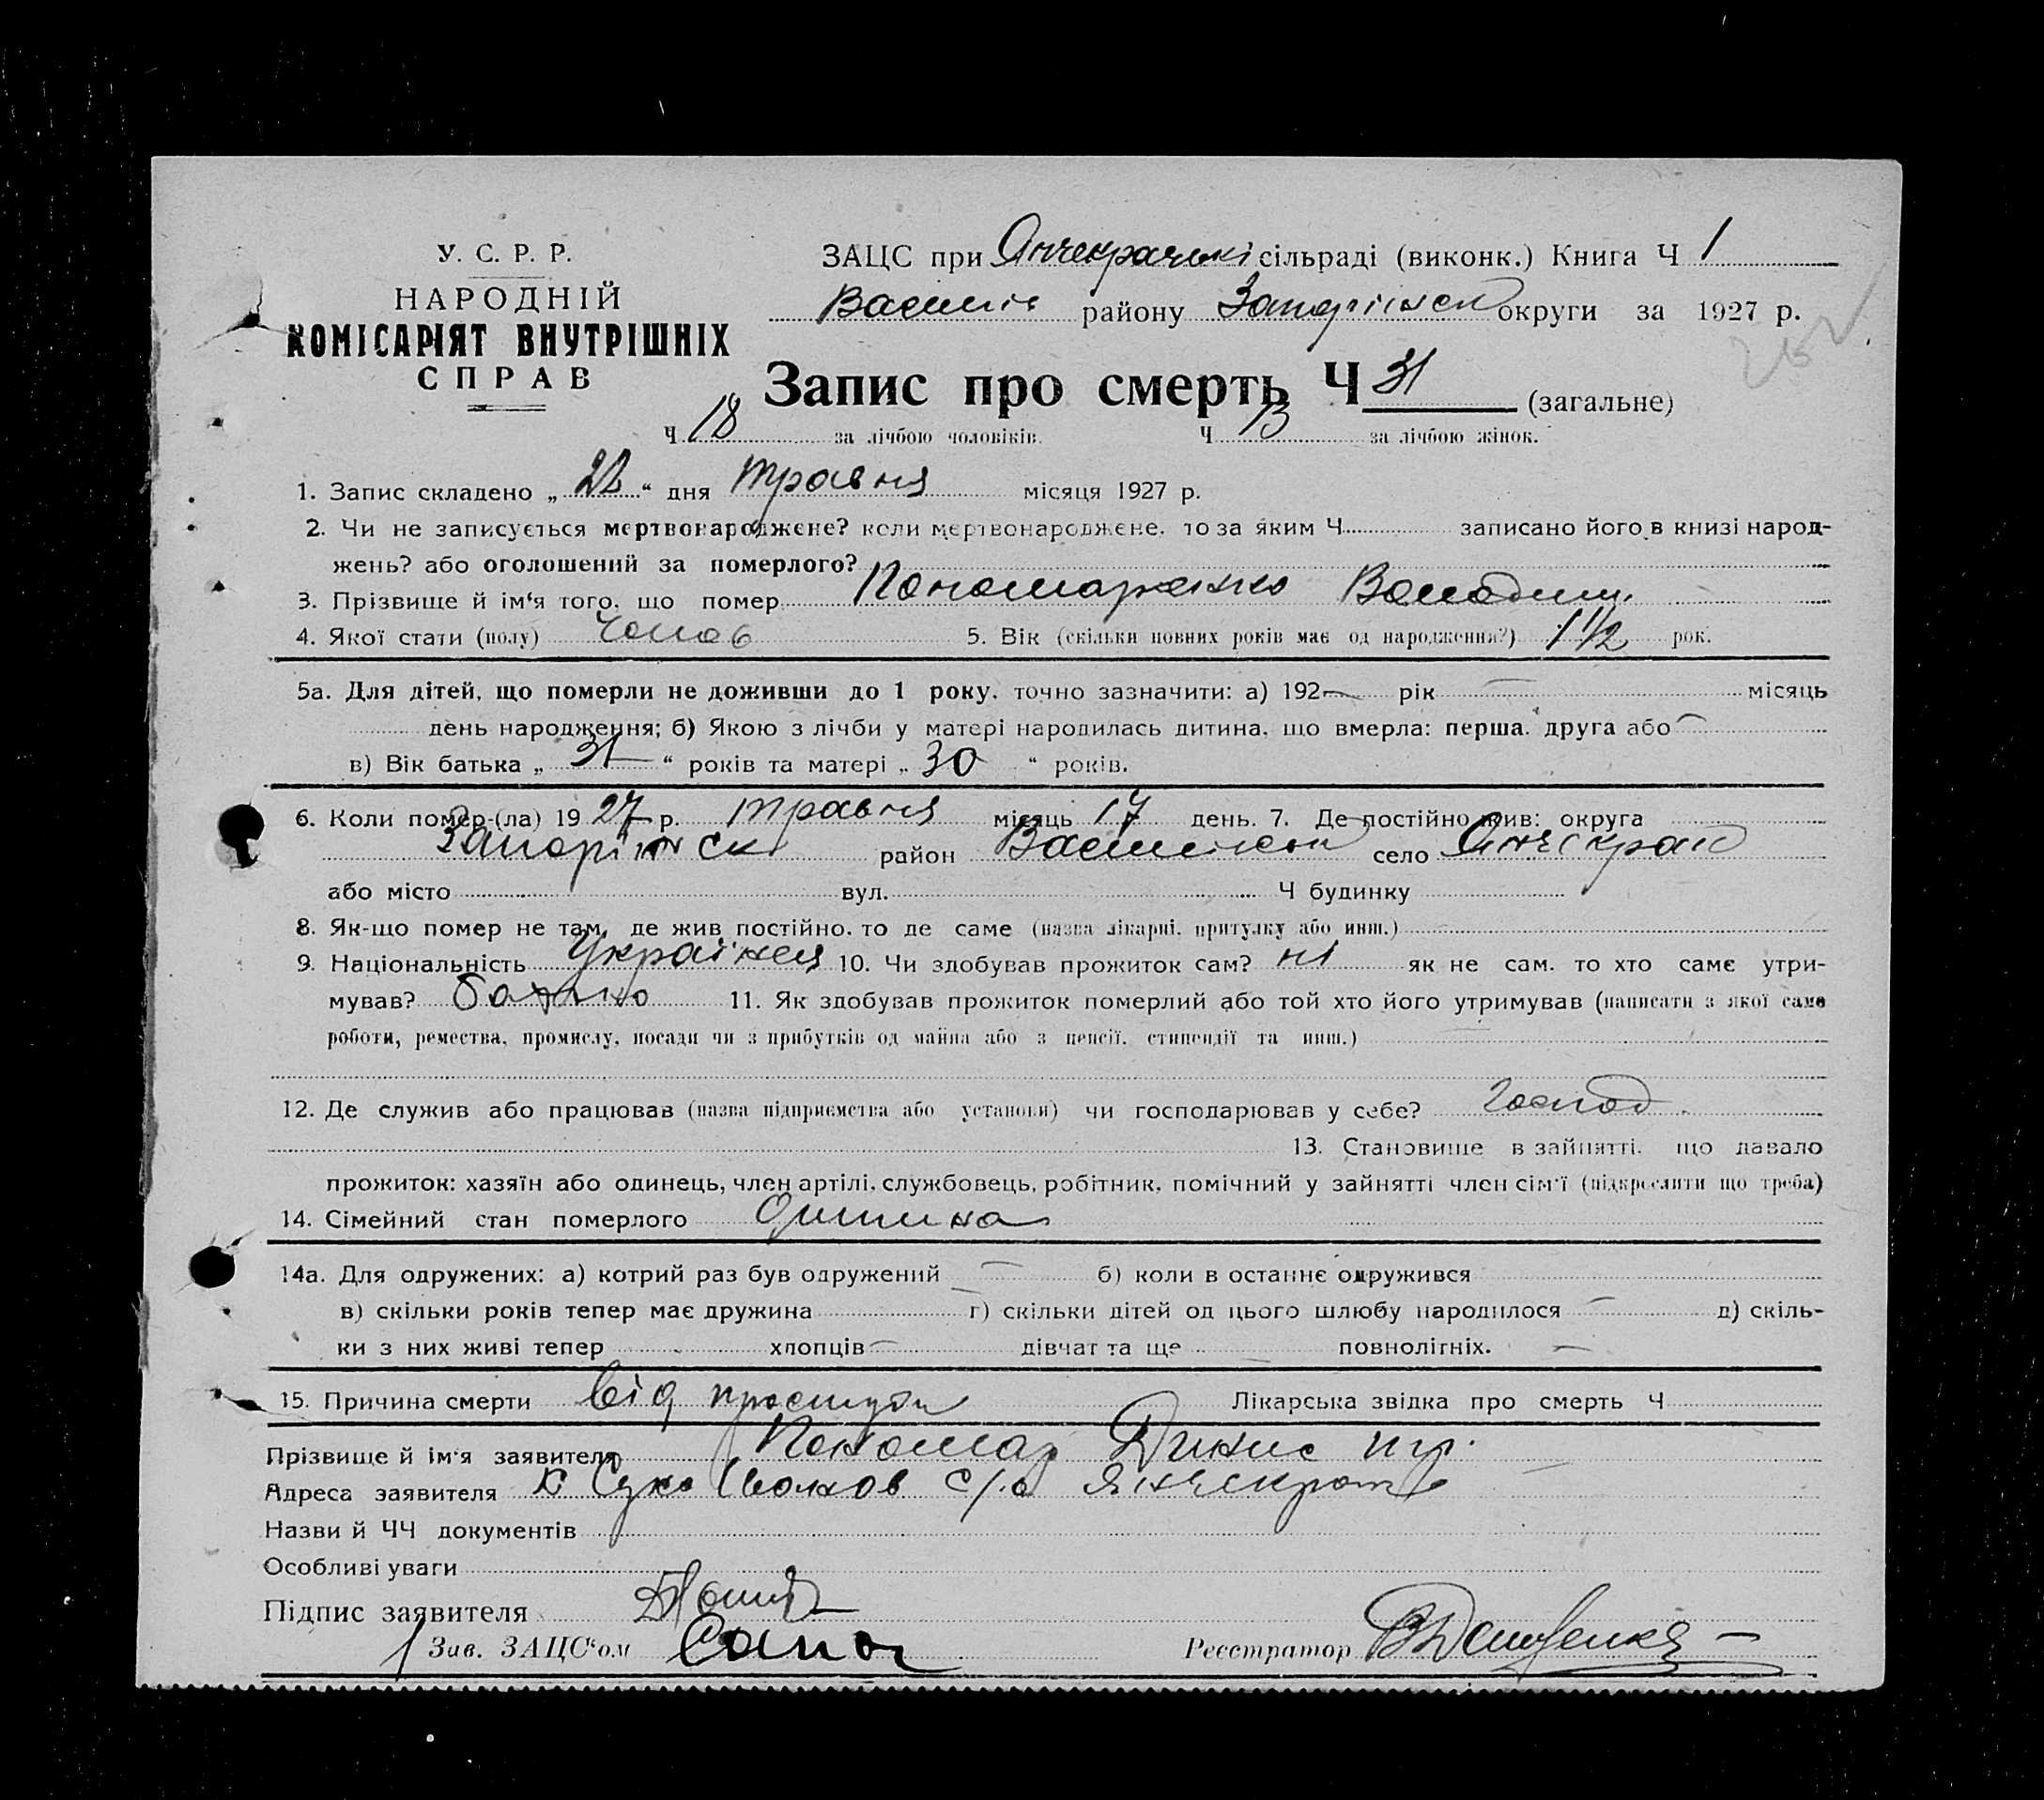 У. С. Р. Р.
НАРОДНІЙ
КОМІСАРІЯТ ВНУТРІШНІХ
СПРАВ
ЗАЦС при Янчекрачькі сільраді (виконк.) Книга Ч 1
Василів району Запоріжск округи за 1927 р.
Запис про смерть Ч 31 (загальне)
Ч 18 за лічбою чоловіків. Ч 13 за лічбою жінок.
1. Запис складено „ 22 “ дня травня місяця 1927 р.
2. Чи не записується мертвонароджене? коли мертвонароджене, то за яким Ч записано його в книзі народ-
жень? або оголошений за померлого?
3. Прізвище й ім‘я того, що помер Пономаренко Володим.
4. Якої стати (полу) Чолов 5. Вік (скільки повних років має од народження?) 1 1/2 рок.
5а. Для дітей, що померли не доживши до 1 року, точно зазначити: а) 192— рік — місяць
день народження; б) Якою з лічби у матері народилась дитина, що вмерла: перша, друга або —
в) Вік батька „ 31 “ років та матері „ 30 “ років.
6. Коли помер-(ла) 1927 р. травня місяць 17 день. 7. Де постійно жив: округа
Запоріжск район Василівськ село Янчекрак
або місто вул. Ч будинку
8. Як-що помер не там, де жив постійно, то де саме (назва лікарні, притулку або инш.)
9. Національність Українец 10. Чи здобував прожиток сам? ні як не сам, то хто саме утри-
мував? батько 11. Як здобував прожиток померлий або той хто його утримував (написати з якої саме
роботи, ремества, промислу, посади чи з прибутків од майна або з пенсії, стипендії та инш.)
12. Де служив або працював (назва підприємства або установи) чи господарював у себе? господ.
13. Становище в зайнятті, що давало
прожиток: хазяїн або одинець, член артілі, службовець, робітник, помічний у зайнятті член сім‘ї (підкреслити що треба)
14. Сімейний стан померлого Дитина
14а. Для одружених: а) котрий раз був одружений — б) коли в останнє одружився
в) скільки років тепер має дружина — г) скільки дітей од цього шлюбу народилося — д) скіль-
ки з них живі тепер хлопців — дівчат та ще — повнолітніх. —
15. Причина смерти від простуди Лікарська звідка про смерть Ч
Прізвище й ім‘я заявителя Пономар Динис
Адреса заявителя х с/р Янчекрак
Назви й ЧЧ документів
Особливі уваги
Підпис заявителя
Зав. ЗАЦС‘ом
Реєстратор